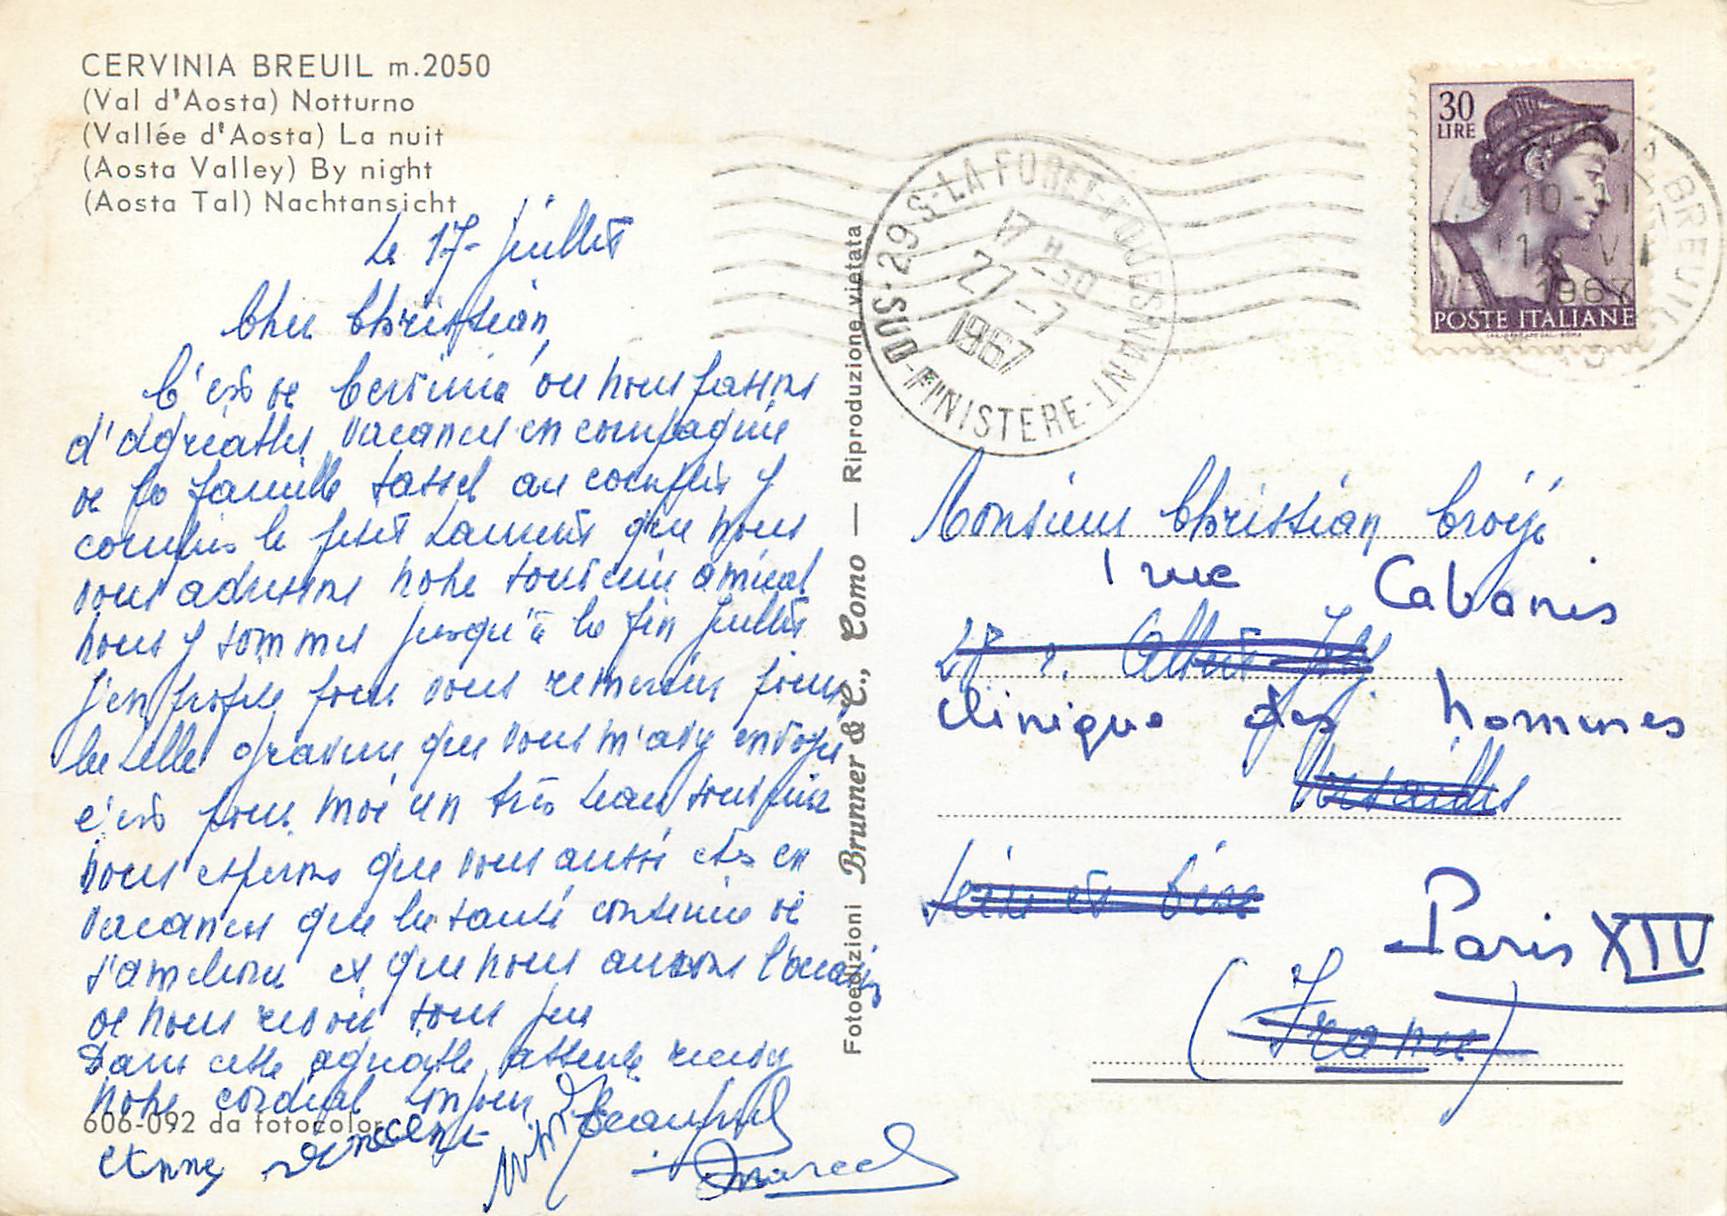 CERVINIA BREUIL m.2050
(Val d'Aosta) Notturno
(Vallée d'Aosta) La nuit
(Aosta Valley) By night
(Aosta Tal) Nachtansicht
Le 17- Juillet
Cher Christian,
C'est de Cervinia ou nous passons
d'agréables vacances en compagnie
de la famille Tassel au complet y
compris le petit Laurent que nous
vous adressons notre souvenir amical
nous y sommes jusqu'à la fin Juillet
J'en profite pour vous remercier pour
la belle gravure que vous m'avez envoyé
c'est pour moi un très beau souvenir
nous espérons que vous aussi etes en
vacances que la santé continue de
s'ameliorer et que nous aurons l'occasion
de nous revoir sous peu
Dans cette agréable attente recevez
notre cordial bonjour
606-092 da fotocolor
Vincent
Marcel
Fotoedizioni Brunner & C., Como — Riproduzione vietata
S-LA FORET-FOUESNANT-
29
SUD-FINISTERE-
17 H -30
27 -7
1967
30
LIRE
POSTE ITALIANE
BREUIL
10-11
1967
Monsieur Christian
1 rue Cabanis
28 r. Albert Joly
clinique des hommes
Versailles
Seine et Oise
Paris XIV
(France)